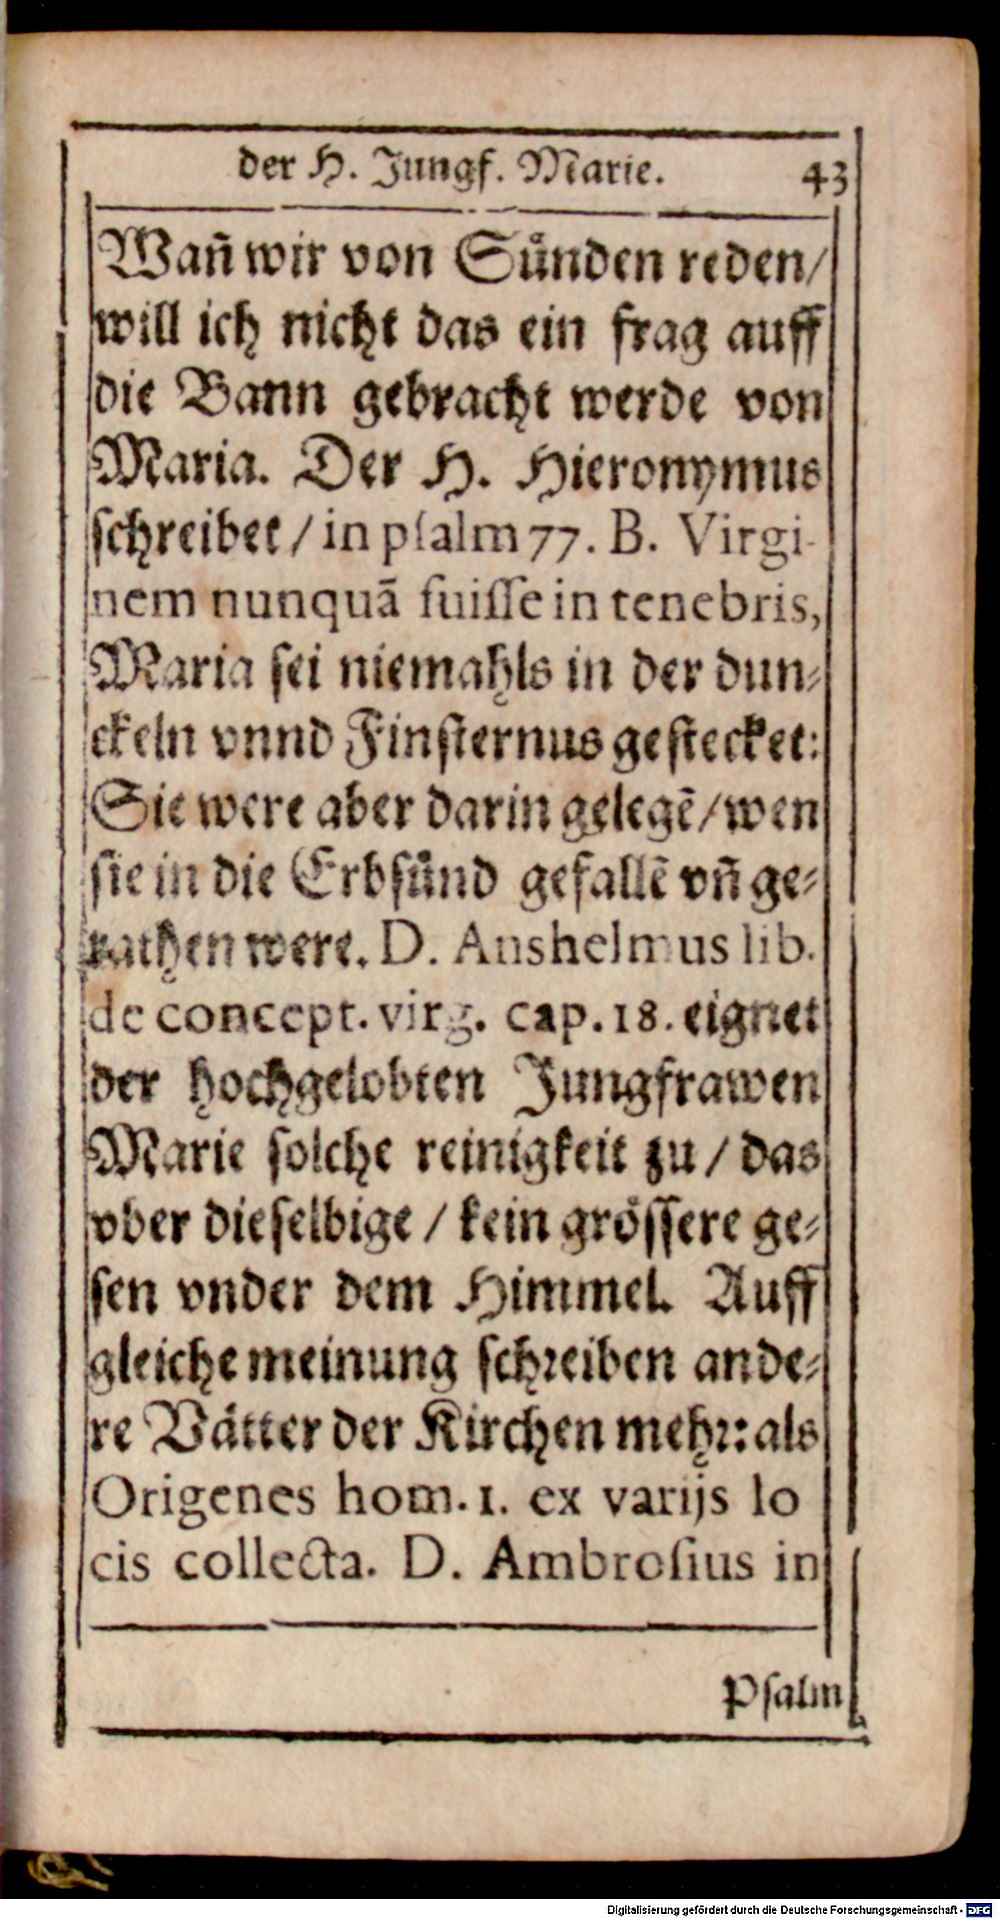 der H. Jungf. Marie. 43
Wañ wir von Sünden reden/
will ich nicht das ein frag auff
die Bann gebracht werde von
Maria. Der H. Hieronymus
schreibet / in psalm 77. B. Virgi-
nem nunquā fuisse in tenebris,
Maria sei niemahls in der dun-
ckeln vnnd Finsternus gestecket:
Sie were aber darin gelegē/wen
sie in die Erbsünd gefallē vñ ge-
rathen were. D. Anshelmus lib.
de concept. virg. cap. 18. eignet
der hochgelobten Jungfrawen
Marie solche reinigkeit zu / das
vber dieselbige / kein grössere ge-
sen vnder dem Himmel. Auff
gleiche meinung schreiben ande-
re Vätter der Kirchen mehr: als
Origenes hom. 1. ex varijs lo
cis collecta. D. Ambrosius in
Psalm
Digitalisierung gefördert durch die Deutsche Forschungsgemeinschaft - DFG